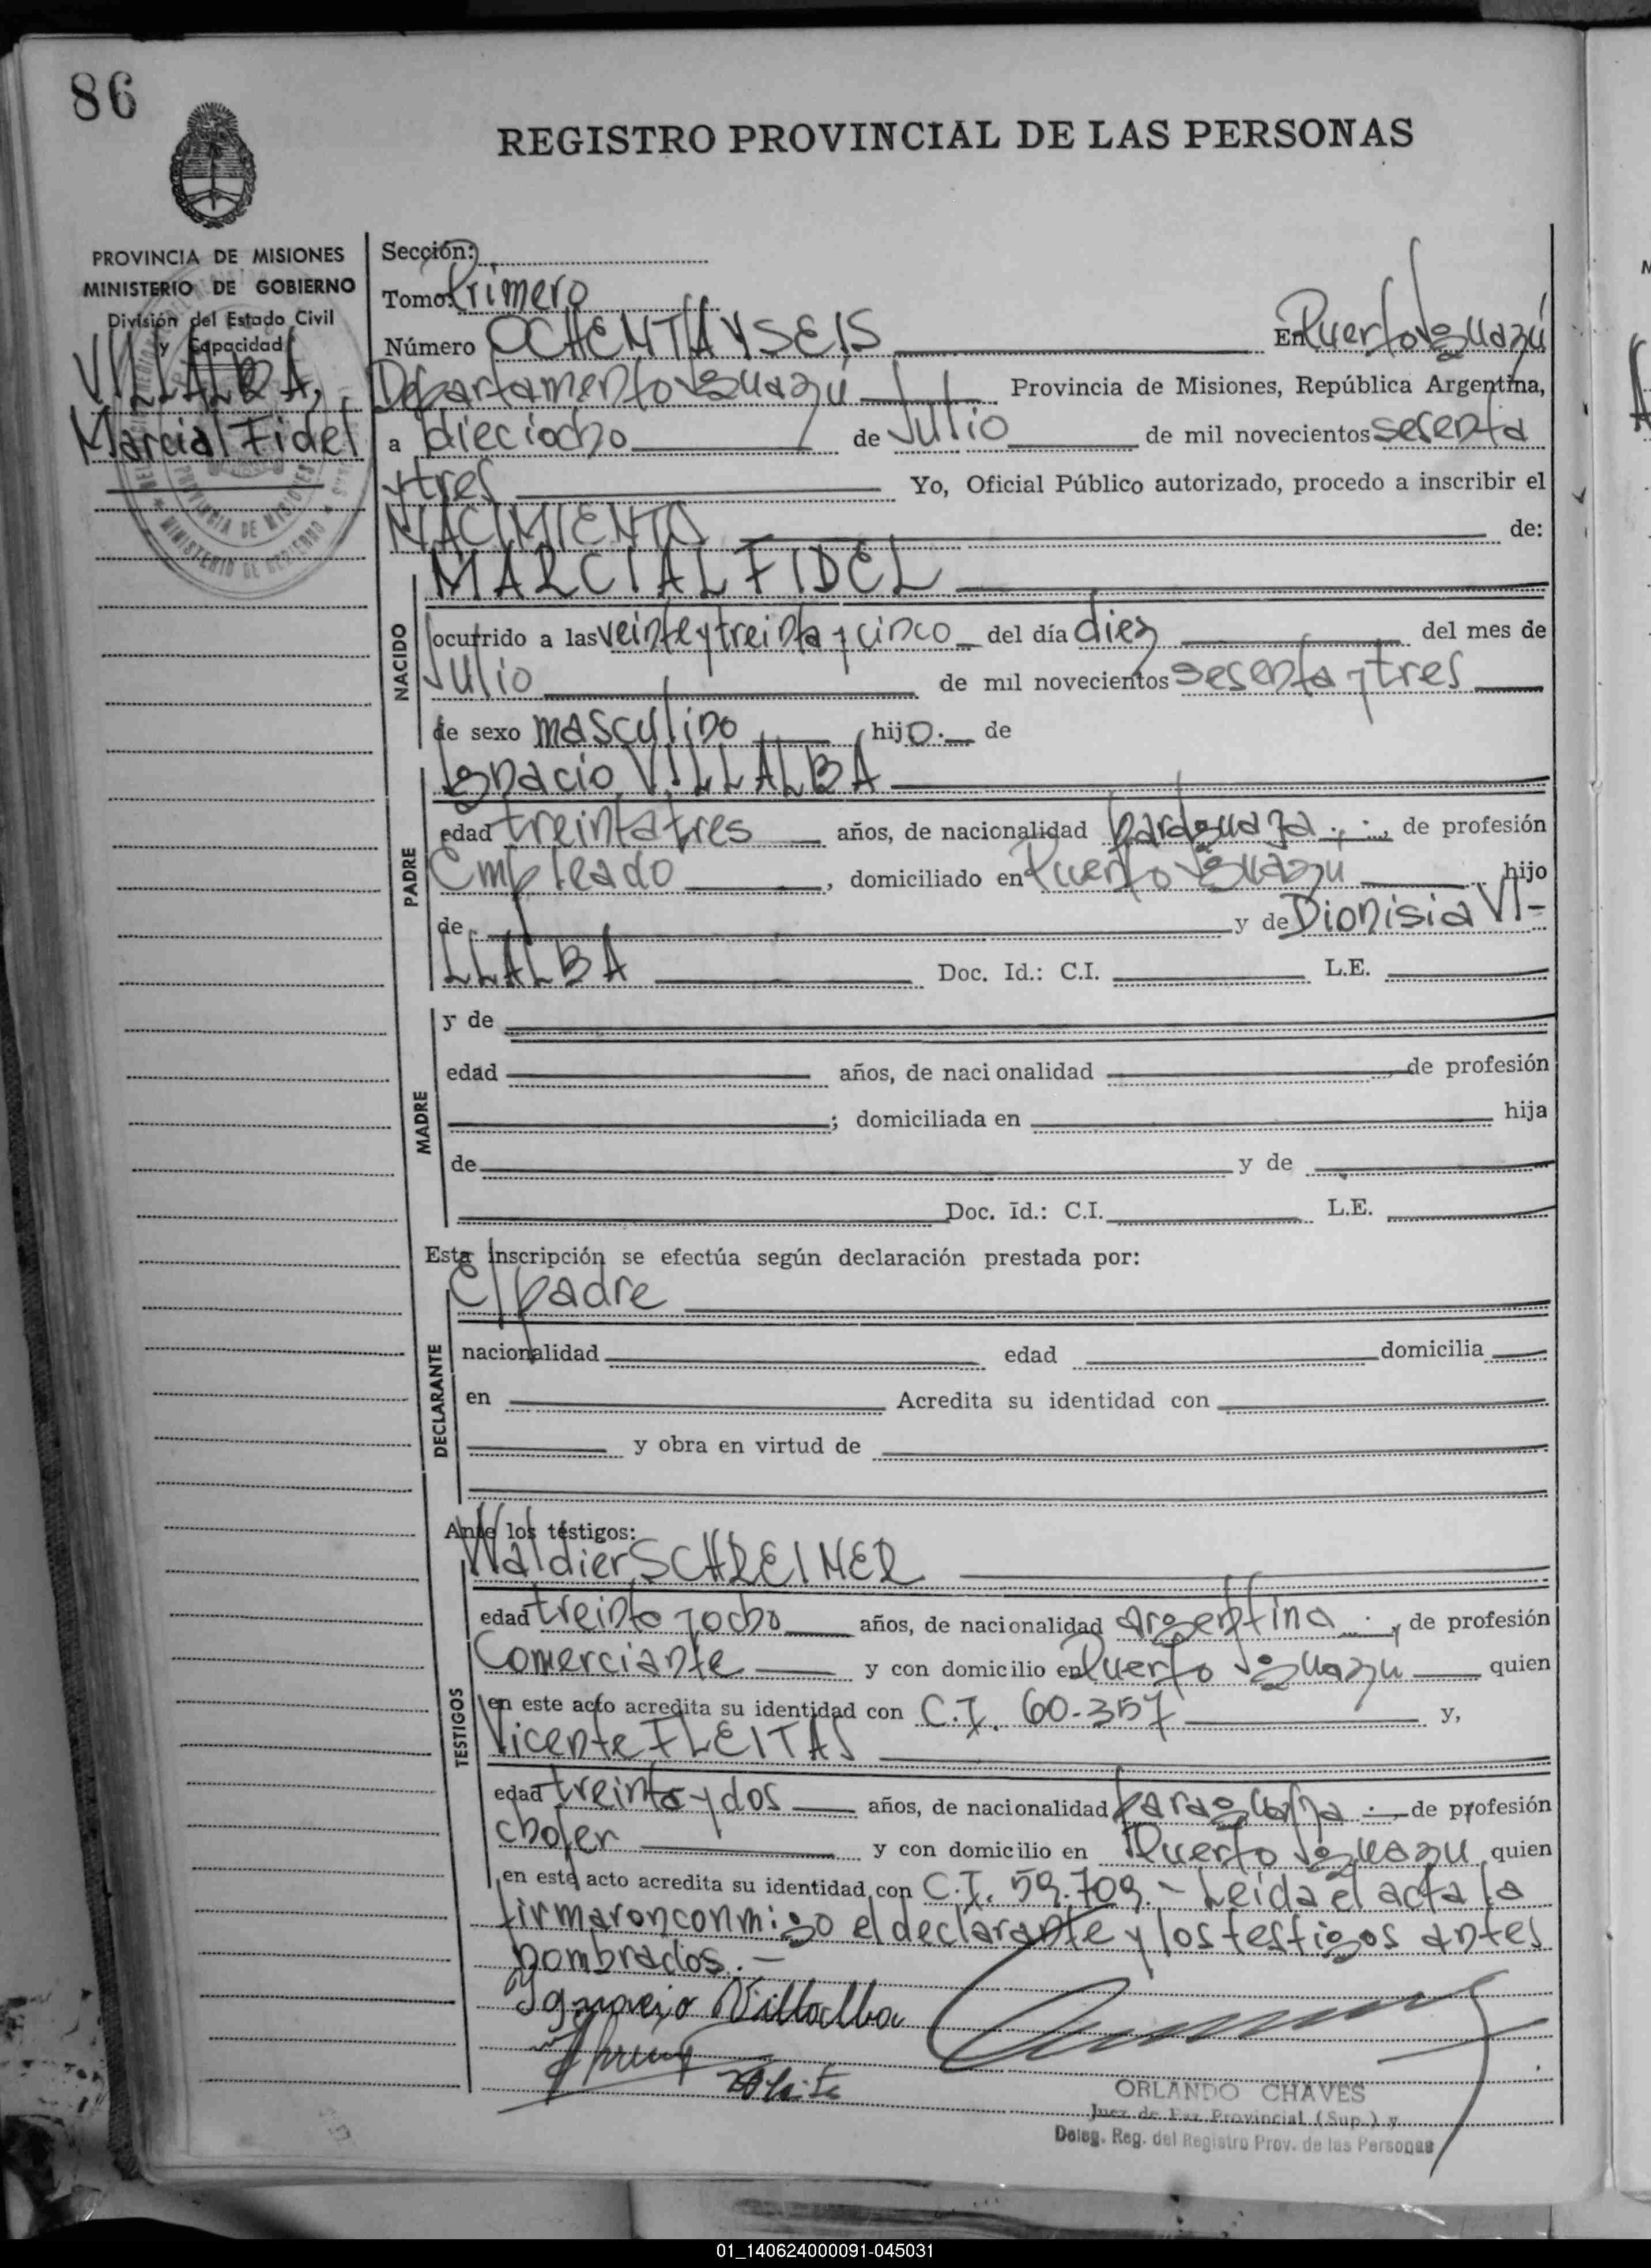 86
REGISTRO PROVINCIAL DE LAS PERSONAS
PROVINCIA DE MISIONES
MINISTERIO DE GOBIERNO
División del Estado Civil
y Capacidad
VILLALBA,
Marcial Fidel
PROVINCIA DE MISIONES
MINISTERIO DE GOBIERNO
Sección:
Tomo: Primero
Número OCHENTA Y SEIS En Puerto Iguazú
Departamento Iguazú Provincia de Misiones, República Argentina,
a dieciocho de Julio de mil novecientos sesenta
y tres Yo, Oficial Público autorizado, procedo a inscribir el
NACIMIENTO de:
MARCIAL FIDEL
NACIDO
ocurrido a las veinte y treinta y cinco del día diez del mes de
Julio de mil novecientos sesenta y tres
de sexo masculino hijo.- de
PADRE
Ignacio VILLALBA
edad treinta tres años, de nacionalidad paraguaya.-, de profesión
Empleado, domiciliado en Puerto Iguazu hijo
de y de Dionisia VI-
LLALBA Doc. Id.: C.I. L.E.
MADRE
y de
edad años, de nacionalidad de profesión
; domiciliada en hija
de y de
Doc. Id.: C.I. L.E.
Esta inscripción se efectúa según declaración prestada por:
DECLARANTE
El padre
nacionalidad edad domicilia
en Acredita su identidad con
y obra en virtud de
Ante los testigos:
TESTIGOS
Waldier SCHREINER
edad treinta y ocho años, de nacionalidad argentina.-, de profesión
Comerciante y con domicilio en Puerto Iguazu quien
en este acto acredita su identidad con C.I. 60.357 y,
Vicente FLEITAS
edad treinta y dos años, de nacionalidad paraguaya.- de profesión
chofer y con domicilio en Puerto Iguazu quien
en este acto acredita su identidad con C.I. 59.709.- Leida el acta la
firmaron conmigo el declarante y los testigos antes
nombrados.-
Ignacio Villalba
ORLANDO CHAVES
Juez de Paz Provincial (Sup.) y
Deleg. Reg. del Registro Prov. de las Personas
01_140624000091-045031